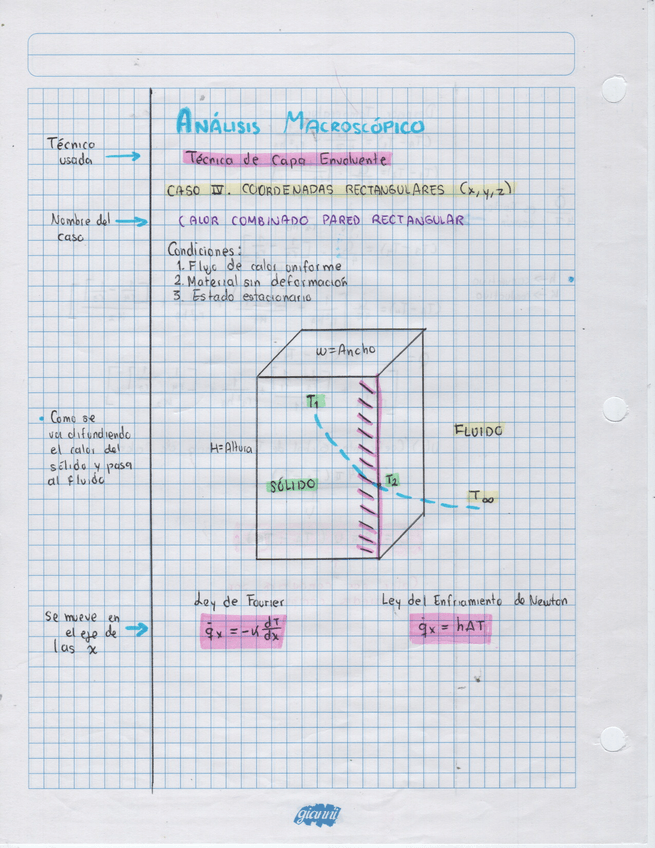 ANÁLISIS MACROSCÓPICO
Técnico
usada
Técnica de Capa Envolvente
CASO IV. COORDENADAS RECTANGULARES (x,y,z)
Nombre del
caso
CALOR COMBINADO PARED RECTANGULAR
Condiciones:
1. Flujo de calor uniforme
2. Material sin deformación
3. Estado estacionario
w=Ancho
T₁
• Como se
va difundiendo
el calor del
sólido y pasa
al fluido
H=Altura
FLUIDO
SÓLIDO
T₂
T∞
Ley de Fourier
Ley del Enfriamiento de Newton
Se mueve en
el eje de
las x
q̇x = -k dT/dx
q̇x = hΔT
gianni